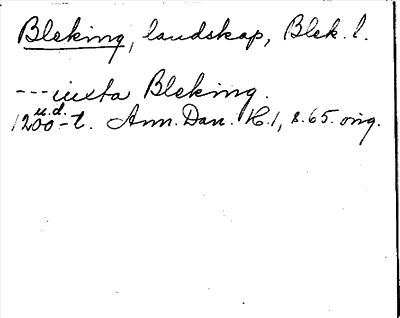 Bleking, landskap, Blek. l.
---iuxta Bleking.
u.d.
1200-t. Ann. Dan. H.1, s.65. orig.